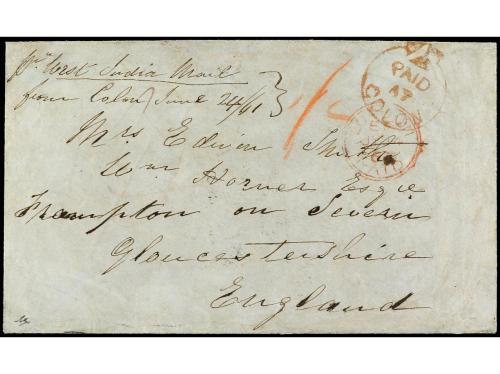 pr West India Mail
from Colon June 24/61
PAID
COLON
PAID
1/-
Mrs Edwin Smith
Wm Horner Esqre
Frampton on Severn
Gloucestershire
England